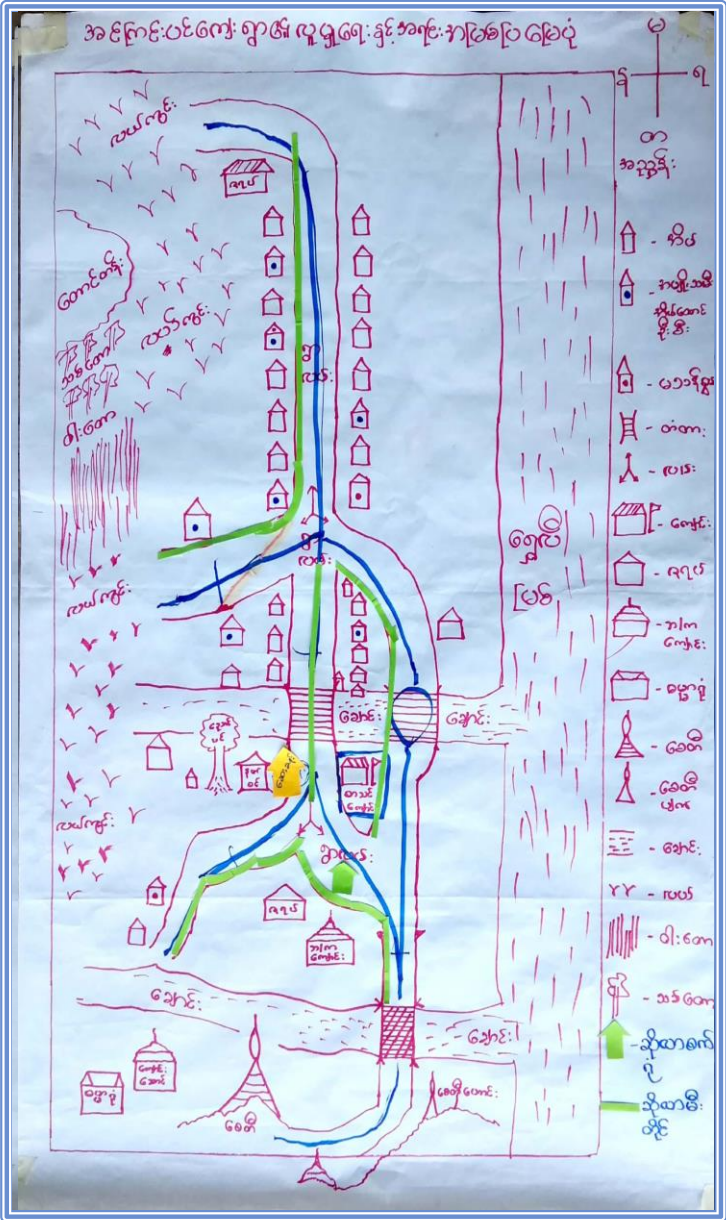 အင်ကြင်းပင်ကျေးရွာ၏ လူမှုရေးနှင့်အရင်းအမြစ်ပြမြေပုံ
မ
န
ရ
တ
အညွှန်း
- အိမ်
- အမျိုးသမီး
အိမ်ထောင်
ဦးစီး
- မသန်စွမ်း
- တံတား
- လမ်း
- ကျောင်း
- ဇရပ်
- ဘ/က
ကျောင်း
- ဓမ္မာရုံ
- စေတီ
- စေတီ
ပျက်
- ချောင်း
- လယ်
- ဝါးတော
- သစ်တော
- ဆိုလာစက်
ရုံ
- ဆိုလာမီး
တိုင်
လယ်ကွင်း
ဇရပ်
တောင်တန်း
လယ်ကွင်း
သစ်တော
ဝါးတော
ရွာ
လမ်း
ရွှေလီ
မြစ်
လယ်ကွင်း
ရွာ
လမ်း
ချောင်း
ချောင်း
ညောင်
ပင်
စာသင်
ကျောင်း
လယ်ကွင်း
ရွာလမ်း
ဇရပ်
ဘ/က
ကျောင်း
ချောင်း
ချောင်း
ကျောင်း
ဆောင်
ဓမ္မာရုံ
စေတီ
စေတီတောင်